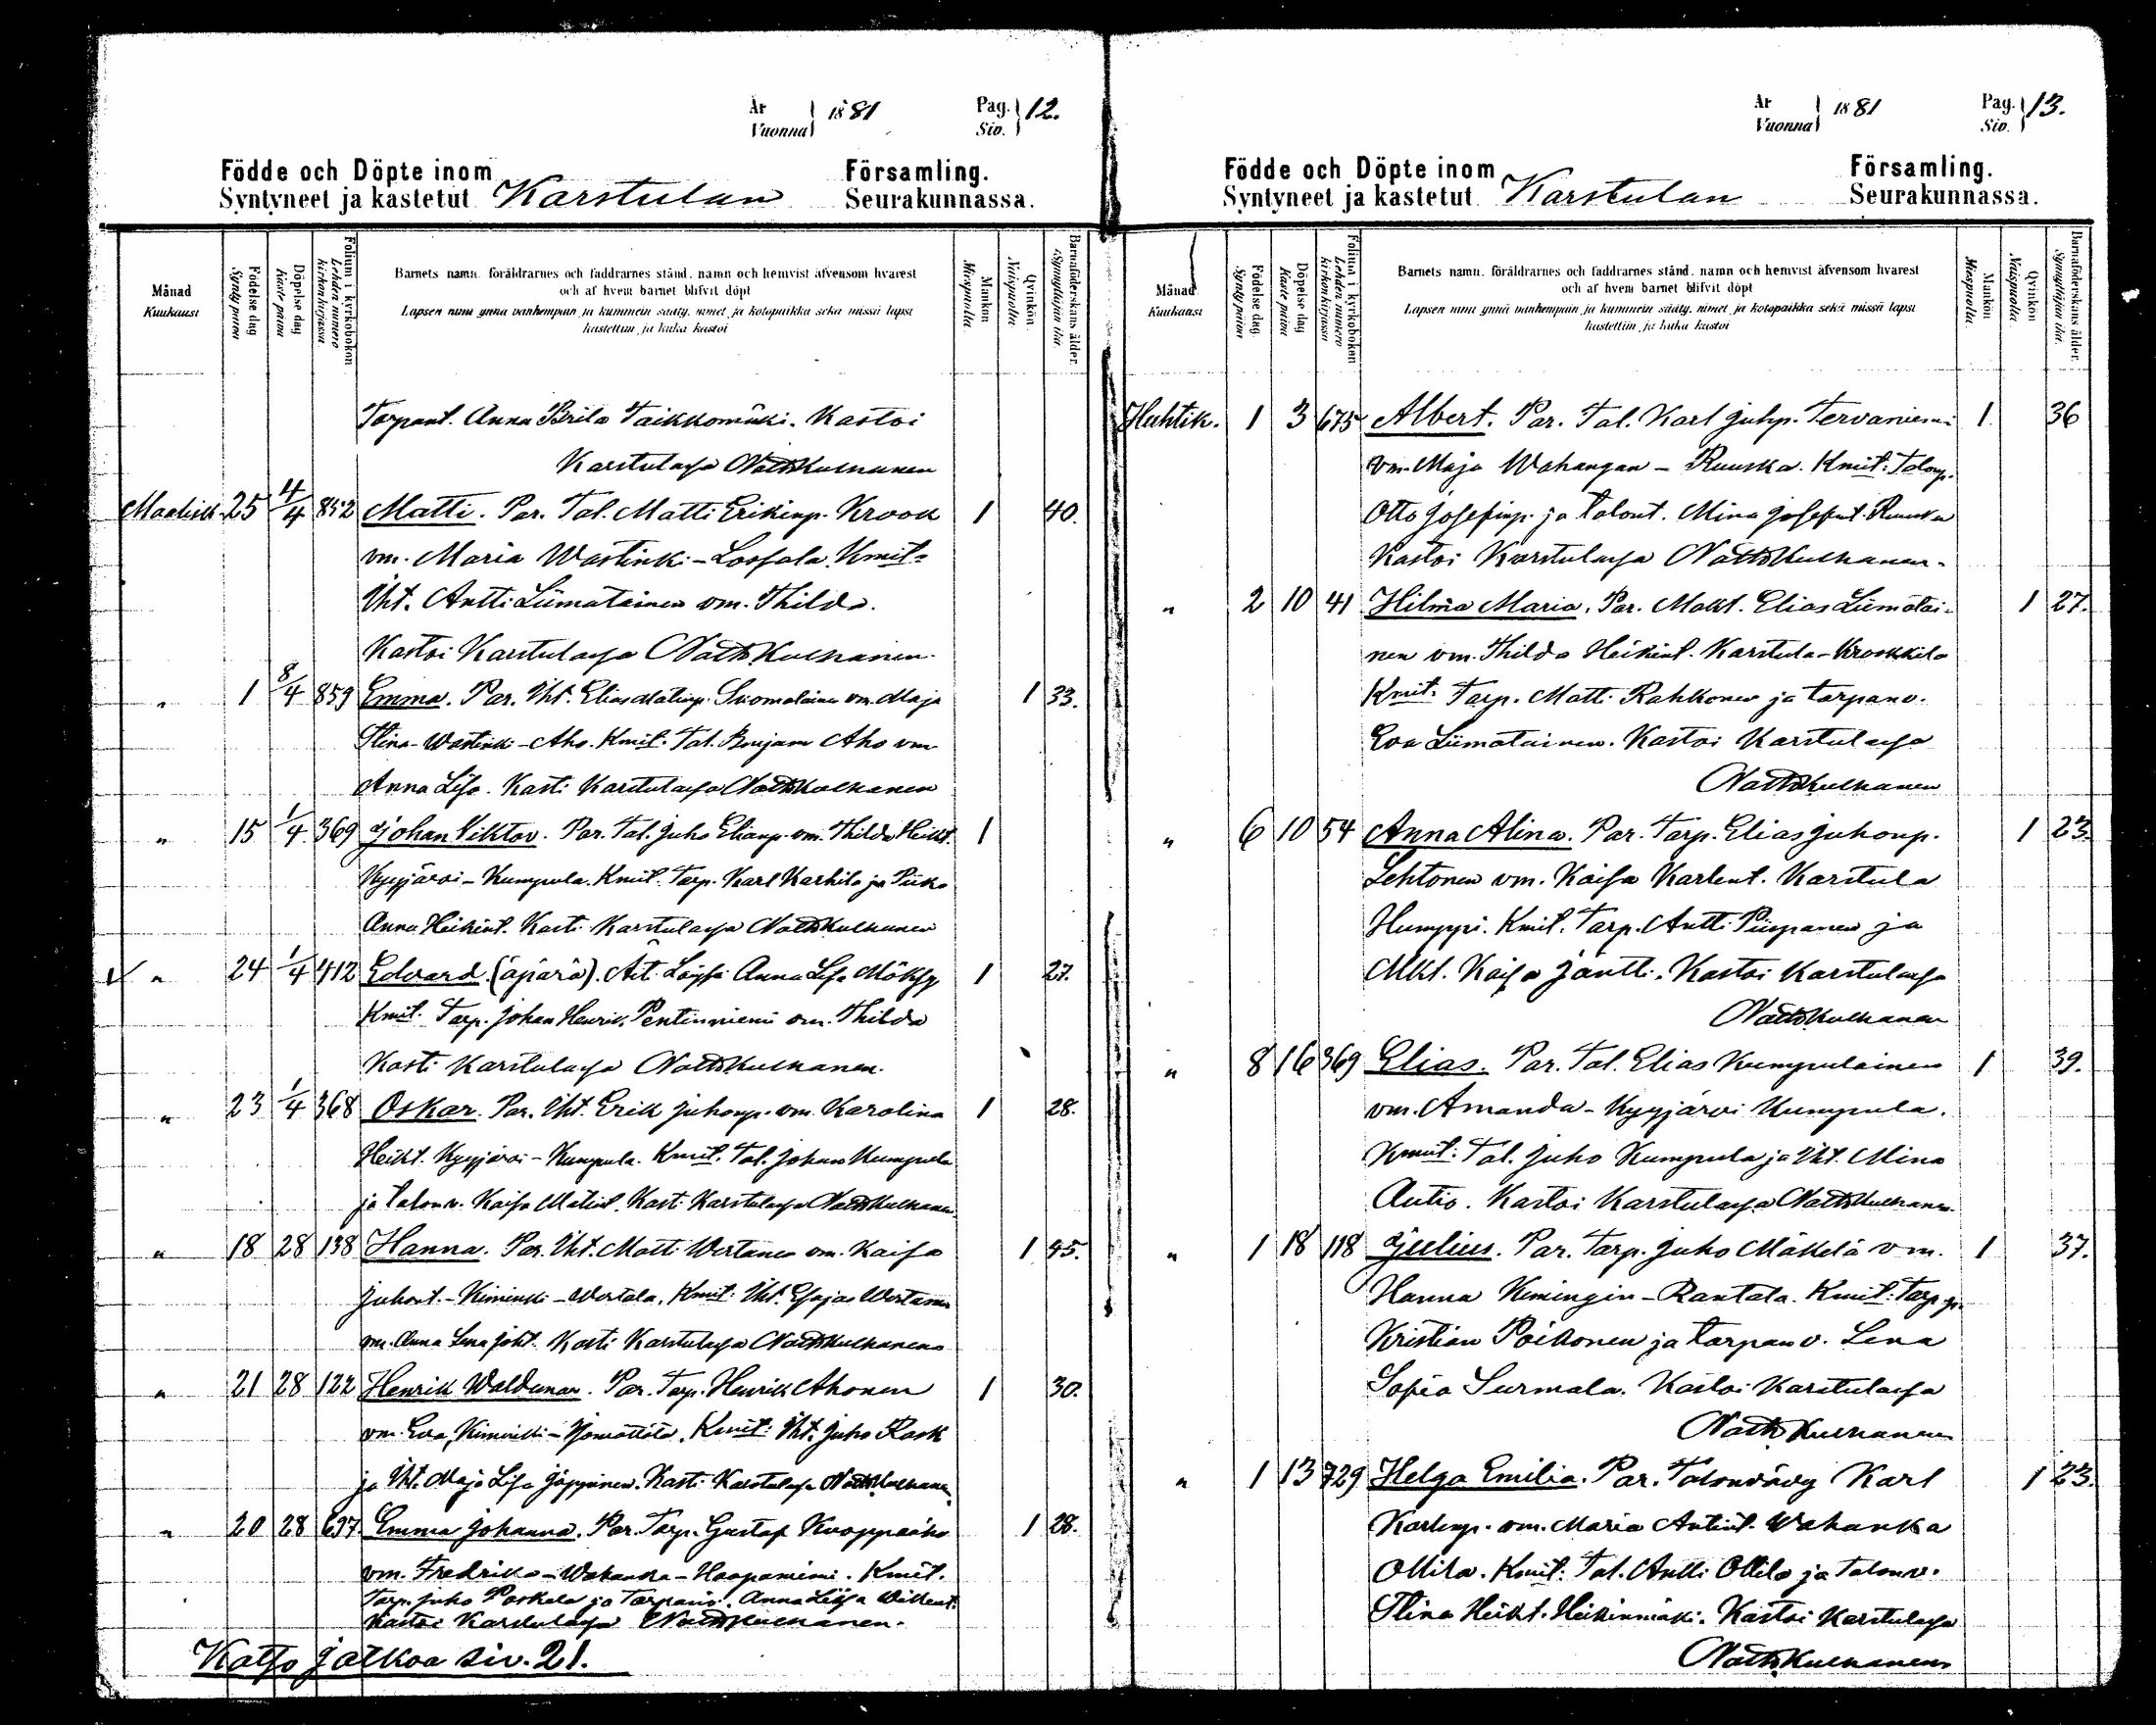 År
Vuonna
1881
Pag.
Siv.
12.
Födde och Döpte inom
Församling.
Syntyneet ja kastetut Karstulan Seurakunnassa.
Månad
Kuukausi
Födelse dag
Synty päivä
Döpelse dag
Kaste päivä
Folium i kyrkoboken
Lehden numero
kirkonkirjassa
Barnets namn, föräldrarnes och faddrarnes stånd, namn och hemvist äfvensom hvarest
och af hvem barnet blifvit döpt
Lapsen nimi ynnä vanhempain ja kummein sääty, nimet ja kotopaikka sekä missä lapsi
kastettiin ja kuka kastoi
Mankön
Miespuolia
Qvinkön
Naispuolia
Barnaföderskans ålder.
Synnyttäjän ikä.
Torpant. Anna Brita Taikkomäki. Kastoi
Karstulassa Kulhanen
Maalisk. 25 4/4 852 Matti. Par. Tal. Matti Erikinp. Krook 1 40.
vm. Maria Wastinki-Lossala. Kmit:
Iht. Antti Liimatainen vm. Thilda.
Kastoi Karstulassa Kulhanen.
" 1 8/4 859 Emma. Par. Iht. Elias Matinp. Suomalainen vm. Maja 1 33.
Stina-Wastinki-Aho. Kmit: Tal. Benjam Aho vm.
Anna Lisa. Kasti Karstulassa Kulhanen
" 15 1/4 369 Johan Viktor. Par. Tal. Juho Elianp. vm. Thilda Heikt. 1
Kyyjärvi-Kumpula. Kmit. Torp. Karl Karhila ja Piika
Anna Heikint. Kasti Karstulassa Kulhanen
" 24 1/4 412 Edvard. (äpärä). Äit. Anna Lisa 1 27.
Kmit. Torp. Johan Henrik Pentinniemi vm. Thilda
Kasti Karstulassa Kulhanen.
" 23 1/4 368 Oskar. Par. Iht. Erik Juhonp. vm. Karolina 1 28.
Heikt. Kyyjärvi-Kumpula. Kmit. Tal. Johan Kumpula
ja talonv. Kaisa Matint. Kasti Karstulassa Kulhanen
" 18 28 138 Hanna. Par. Iht. Matti Wertanen vm. Kaisa 1 45.
Juhont.-Kiminki-Wertala. Kmit: Iht. Esajas Wertanen
vm. Anna Lena Joht. Kasti Karstulassa Kulhanen
" 21 28 122 Henrik Waldemar. Par. Torp. Henrik Ahonen 1 30.
vm. Eva, Kiminki- Kmit: Iht. Juho Rask
ja Iht. Maja Lisa Jäppinen. Kasti Karstulassa Kulhanen
" 20 28 637 Emma Johanna. Par. Torp. Gustaf 1 28.
vm. Fredrika-Wahanka-Haapaniemi. Kmit.
Torp. Juho ja Torpanv. Anna Liisa
Kastoi Karstulassa Kulhanen.
Katso jatkoa siv. 21.
År
Vuonna
1881
Pag.
Siv.
13.
Födde och Döpte inom
Församling.
Syntyneet ja kastetut Karstulan Seurakunnassa.
Månad
Kuukausi
Födelse dag
Synty päivä
Döpelse dag
Kaste päivä
Folium i kyrkoboken
Lehden numero
kirkonkirjassa
Barnets namn, föräldrarnes och faddrarnes stånd, namn och hemvist äfvensom hvarest
och af hvem barnet blifvit döpt
Lapsen nimi ynnä vanhempain ja kummein sääty, nimet ja kotopaikka sekä missä lapsi
kastettiin ja kuka kastoi
Mankön
Miespuolia
Qvinkön
Naispuolia
Barnaföderskans ålder.
Synnyttäjän ikä.
Huhtik. 1 3 675 Albert. Par. Tal. Karl Juhp. Tervaniemi 1 36
vm. Maja Wahangan-Ruuska. Kmit: Talonp.
Otto Josefinp. ja talont. Mina Josefint. Ruuska
Kastoi Karstulassa Kulhanen.
" 2 10 41 Hilma Maria. Par. Mökt. Elias Liimatai- 1 27.
nen vm. Thilda Heikint. Karstula-Krookkila
Kmit: Torp. Matti Rahkonen ja torpanv.
Eva Liimatainen. Kastoi Karstulassa
Kulhanen
" 6 10 54 Anna Alina. Par. Torp. Elias Juhonp. 1 23.
Lehtonen vm. Kaisa Karlent. Karstula
Humppi. Kmit. Torp. Antti Piispanen ja
Mkt. Kaisa Jäntti. Kastoi Karstulassa
Kulhanen
" 8 16 369 Elias. Par. Tal. Elias Kumpulainen 1 39.
vm. Amanda-Kyyjärvi Kumpula.
Kmit: Tal. Juho Kumpula ja Iht. Mina
Autio. Kastoi Karstulassa Kulhanen.
" 1 18 118 Julius. Par. Torp. Juho Mäkelä vm. 1 37.
Hanna Kimingin-Rantala. Kmit: Torp.
Kristian Poikonen ja torpanv. Lena
Sofia Surmala. Kastoi Karstulassa
Kulhanen
" 1 13 729 Helga Emilia. Par. Talonvävy Karl 1 23.
Karlinp. vm. Maria Antint. Wahanka
Ollila. Kmit: Tal. Antti Ollila ja talonv.
Stina Heikt. Heikinmäki. Kastoi Karstulassa
Kulhanen